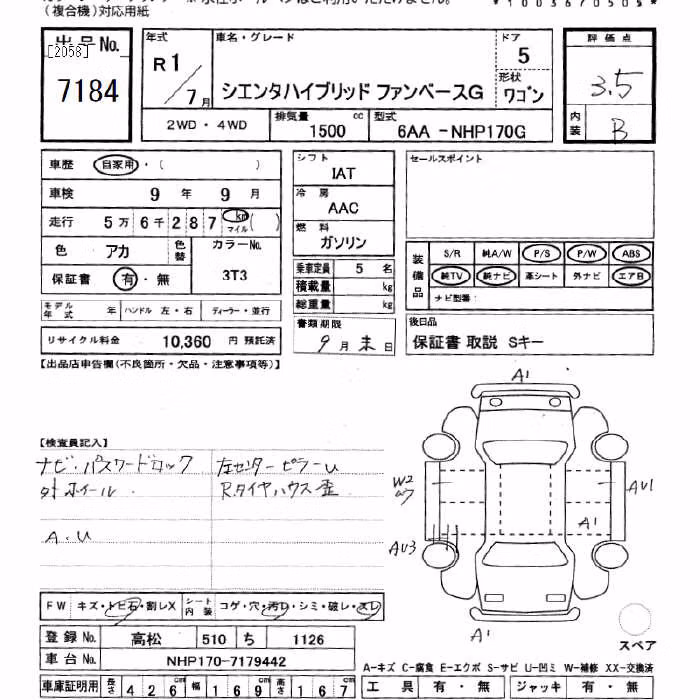 (複合機)対応用紙
*1003670505*
出品No. [2058] 7184
年式 R1/7月
車名・グレード シエンタハイブリッド ファンベースG
ドア 5
形状 ワゴン
評価点 3.5
内装 B
2WD・4WD 排気量 1500 cc 型式 6AA -NHP170G
車歴 自家用・( )
車検 9年 9月
走行 5万6千287 km マイル( )
色 アカ 色替 カラーNo. 3T3
保証書 有・無
モデル年式 年 ハンドル 左・右 ディーラー・並行
リサイクル料金 10,360 円 預託済
シフト IAT
冷房 AAC
燃料 ガソリン
乗車定員 5 名
積載量 kg
総重量 kg
書類期限 9月末日
セールスポイント
装備品 S/R 純A/W P/S P/W ABS
純TV 純ナビ 革シート 外ナビ エアB
ナビ型番:
後日品
保証書 取説 Sキー
【出品店申告欄(不良箇所・欠品・注意事項等)】
【検査員記入】
ナビ・パスワードロック 左センターピラーU
外ホイール Rタイヤハウス歪
A.U
A1
W2
AU1
A1
AU3
A1
スペア
FW キズ・トビ石・割レX シート内装 コゲ・穴・汚レ・シミ・破レ・スレ
登録No. 高松 510 ち 1126
車台No. NHP170-7179442
車庫証明用 長さ 426cm 幅 169cm 高さ 167cm
A-キズ C-腐食 E-エクボ S-サビ U-凹ミ W-補修 XX-交換済
工具 有・無 ジャッキ 有・無